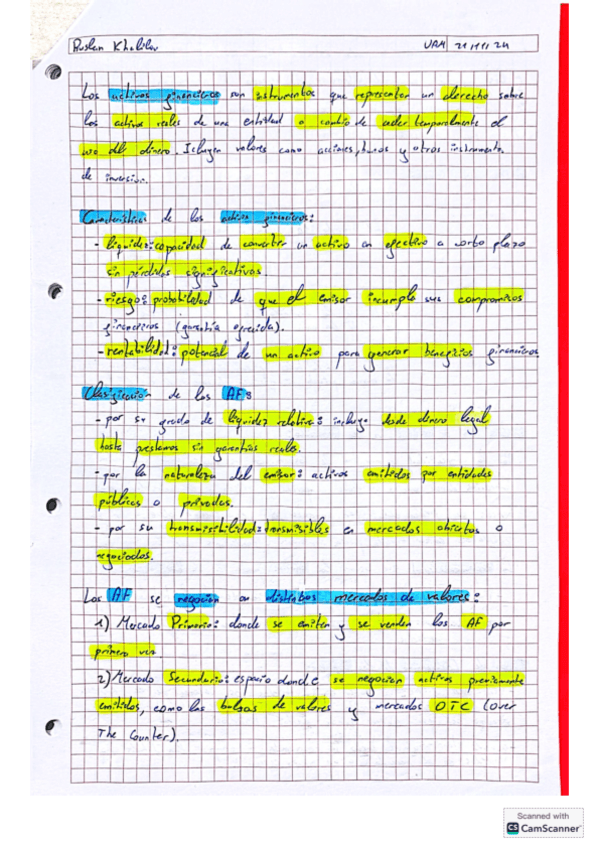 Ruslan Khalilov UAM 21/11/24
Los activos financieros son instrumentos que representan un derecho sobre
los activos reales de una entidad a cambio de ceder temporalmente el
uso del dinero. Icluyen valores como acciones, bonos y otros instrumentos
de inversión.
Características de los activos financieros:
- liquidez: capacidad de convertir un activo en efectivo a corto plazo
sin pérdidas significativas.
- riesgo: probabilidad de que el emisor incumpla sus compromisos
financieros (garantía ofrecida).
- rentabilidad: potencial de un activo para generar beneficios financieros
Clasificación de los AF:
- por su grado de liquidez relativa: incluye desde dinero legal
hasta prestamos sin garantías reales.
- por la naturaleza del emisor: activos emitidos por entidades
públicas o privadas.
- por su transmisibilidad: transmisibles en mercados abiertos o
negociados.
Los AF se negocian en distintos mercados de valores:
1) Mercado Primario: donde se emiten y se venden los AF por
primera vez
2) Mercado Secundario: espacio donde se negocian activos previamente
emitidos, como las bolsas de valores y mercados OTC (Over
The Counter).
Scanned with
CS CamScanner